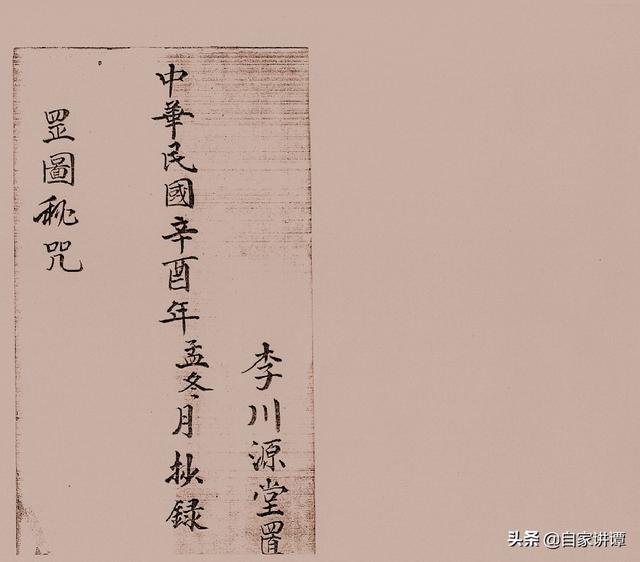 李川源堂置
中華民國辛酉年孟冬月抄錄
罡圖秘咒
头条 @自家讲谭